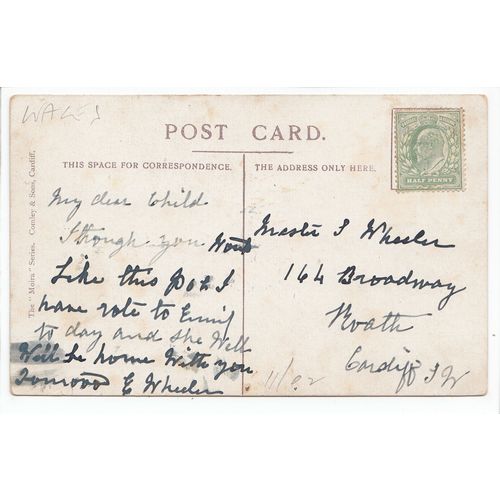 WALES
POST CARD.
THIS SPACE FOR CORRESPONDENCE.
THE ADDRESS ONLY HERE.
The "Moira" Series. Comley & Sons, Cardiff.
HALF PENNY
My dear Child
I though you Wout
Like this Pok I
have rote to
to day and she Well
Well be home With you
E Wheeler
Master I Wheeler
164 Broadway
Roath
Cardiff S W